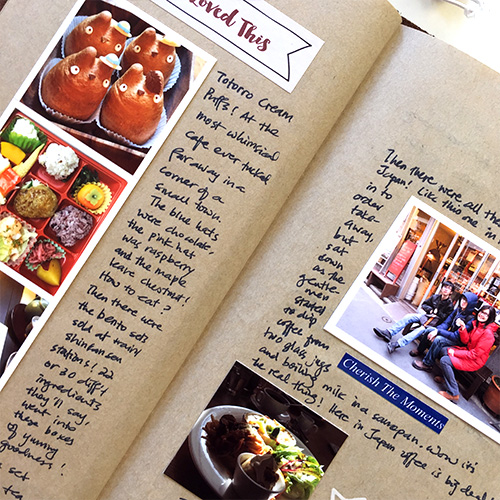 Loved This
Totorro Cream
Puffs! At the
most whimsical
cafe ever tucked
far away in a
corner of a
small town.
The blue hats
were chocolate,
the pink hat
was raspberry
and the maple
leave chestnut!
How to eat?
Then there were
the bento sets
sold at train/
shinkansen
stations! 20
or 30 diff't
ingredients
they'll say,
went into
these boxes
of yummy
goodness!
set
tea
Then there were all the
Japan! Like this one in
in to
order
take
away,
but
sat
down
as the
gentle
men
started
to drip
coffee from
two glass jugs
and boiling milk in a saucepan. Wow it's
the real thing! Here in Japan coffee is big deal
Cherish The Moments